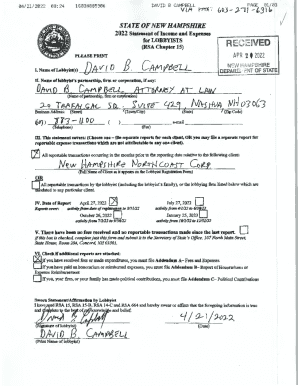 04/21/2022 03:24 16034885906 DAVID B CAMPBELL PAGE 01/03
VIA FAX: 603-271-6316
STATE OF NEW HAMPSHIRE
2022 Statement of Income and Expenses
for LOBBYISTS
(RSA Chapter 15)
PLEASE PRINT
RECEIVED
APR 2 2022
NEW HAMPSHIRE
DEPARTMENT OF STATE
I. Name of Lobbyist(s) DAVID B. CAMPBELL
II. Name of lobbyist's partnership, firm or corporation, if any:
DAVID B. CAMPBELL ATTORNEY AT LAW
(Name of partnership, firm or corporation)
20 TRAFALGAR SQ. SUITE 429 NASHUA NH 03063
(Town/City) (State) (Zip Code)
(Telephone) (Fax) (Email)
III. This statement covers: (Choose one - file separate reports for each client, OR you may file a separate report for
reportable expense transactions which are not attributable to any one client).
All reportable transactions occurring in the months prior to the reporting date relative to the following client:
NEW HAMPSHIRE NORTHCOAST CORP
(Full Name of Client as it appears on the Lobbyist Registration Form)
OR
All reportable transactions by the lobbyist (including the lobbyist's family), or the lobbying firm listed below which are
unrelated to any particular client.
IV. Date of Report April 27, 2022 July 27, 2022
October 26, 2022 January 25, 2023
V. There have been no fees received and no reportable transactions made since the last report.
If this box is checked, complete just this form and submit it to the Secretary of State's Office, 107 North Main Street,
State House, Room 204, Concord, NH 03301.
VI. Check if additional reports are attached:
If you have received fees or made expenditures, you must file Addendum A - Fees and Expenses
If you have paid an honorarium or reimbursed expenses, you must file Addendum B - Report of Honorariums or
Expense Reimbursement
If you, your firm, or your family has made political contributions, you must file Addendum C - Political Contributions
Sworn Statement/Affirmation by Lobbyist
I have read RSA 15, RSA 15-B, RSA 14-C and RSA 664 and hereby swear or affirm that the foregoing information is true
and complete to the best of my knowledge and belief.
4/21/2022
(Signature of lobbyist) (Date)
DAVID B. CAMPBELL
(Print Name of lobbyist)